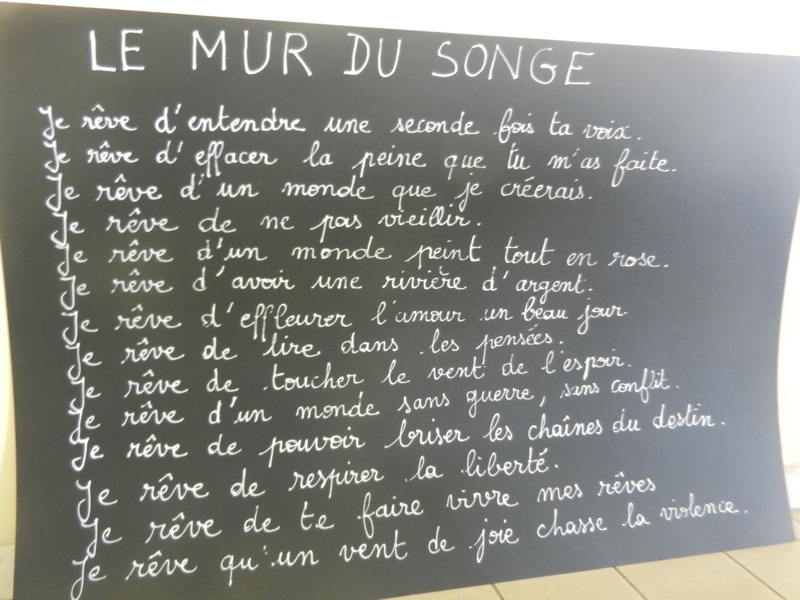 LE MUR DU SONGE
Je rêve d'entendre une seconde fois ta voix.
Je rêve d'effacer la peine que tu m'as faite.
Je rêve d'un monde que je créerais.
Je rêve de ne pas vieillir.
Je rêve d'un monde peint tout en rose.
Je rêve d'avoir une rivière d'argent.
Je rêve d'effleurer l'amour un beau jour.
Je rêve de lire dans les pensées.
Je rêve de toucher le vent de l'espoir.
Je rêve d'un monde sans guerre, sans conflit.
Je rêve de pouvoir briser les chaînes du destin.
Je rêve de respirer la liberté.
Je rêve de te faire vivre mes rêves
Je rêve qu'un vent de joie chasse la violence.